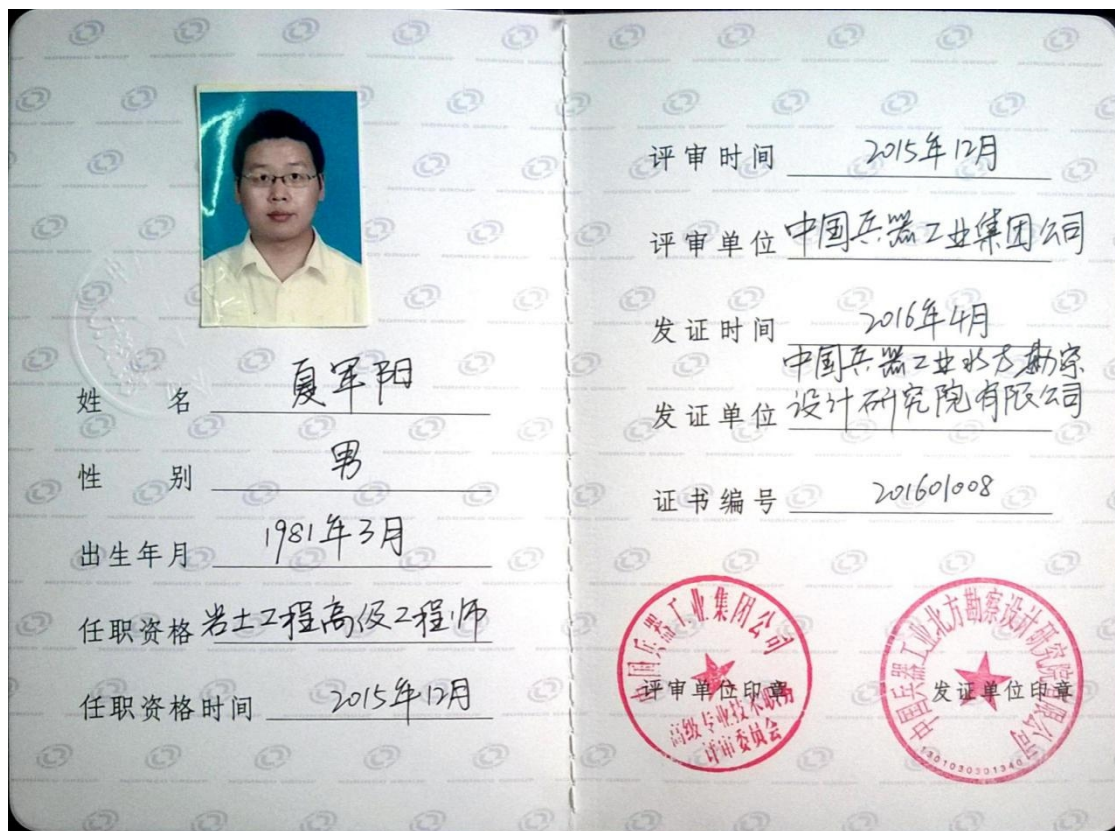 姓 名 夏军阳
性 别 男
出生年月 1981年3月
任职资格 岩土工程高级工程师
任职资格时间 2015年12月
评审时间 2015年12月
评审单位 中国兵器工业集团公司
发证时间 2016年4月
中国兵器工业北方勘察
发证单位 设计研究院有限公司
证书编号 201601008
中国兵器工业集团公司
评审单位印章
高级专业技术职务
评审委员会
中国兵器工业北方勘察设计研究院有限公司
发证单位印章